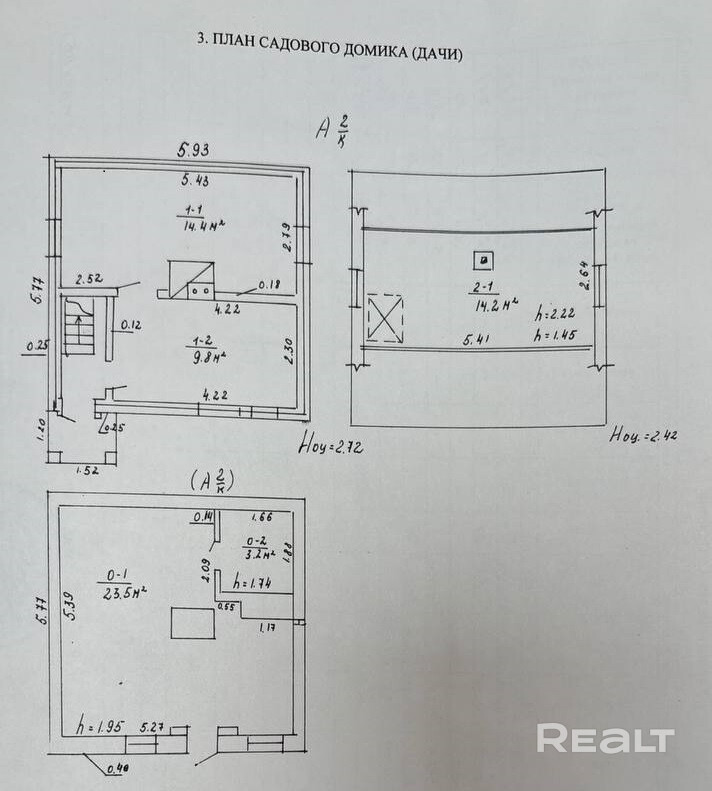 3. ПЛАН САДОВОГО ДОМИКА (ДАЧИ)
А 2/к
5.93
5.43
1-1
14.4 м²
2.79
5.77
2.52
0.18
4.22
0.12
0.25
1-2
9.8 м²
2.30
4.22
0.25
1.20
1.52
Ноц=2.72
2-1
14.2 м²
2.64
h=2.22
h=1.45
5.41
Ноц.=2.42
(А 2/к)
0.14
1.66
0-2
3.2 м²
1.88
2.09
h=1.74
0-1
23.5 м²
0.55
1.17
5.77
5.39
h=1.95
5.27
0.40
REALT